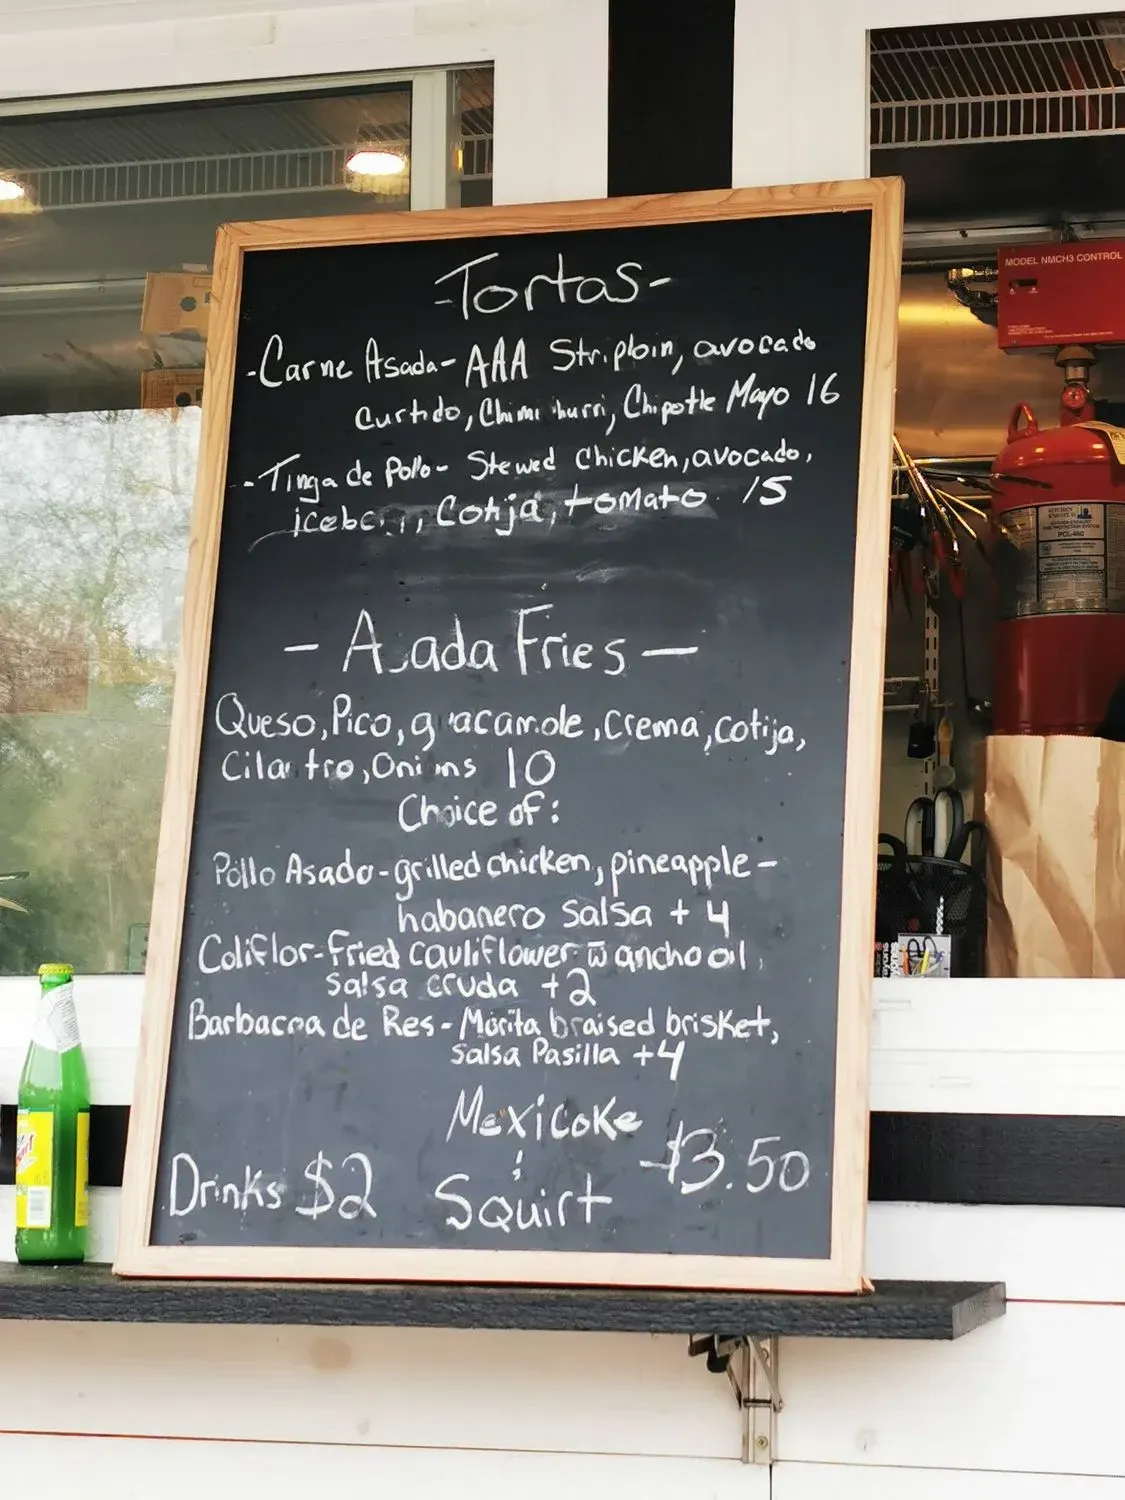 -Tortas-
-Carne Asada- AAA Striploin, avocado
Curtido, Chimichurri, Chipotle Mayo 16
-Tinga de Pollo- Stewed Chicken, avocado,
iceberg, Cotija, tomato 15
- Asada Fries -
Queso, Pico, guacamole, Crema, cotija,
Cilantro, Onions 10
Choice of:
Pollo Asado-grilled chicken, pineapple-
habanero salsa +4
Coliflor-Fried cauliflower w̅ ancho oil,
salsa cruda +2
Barbacoa de Res-Morita braised brisket,
salsa Pasilla +4
Mexicoke
Drinks $2
Squirt
$3.50
MODEL NMCH3 CONTROL
PCL-460